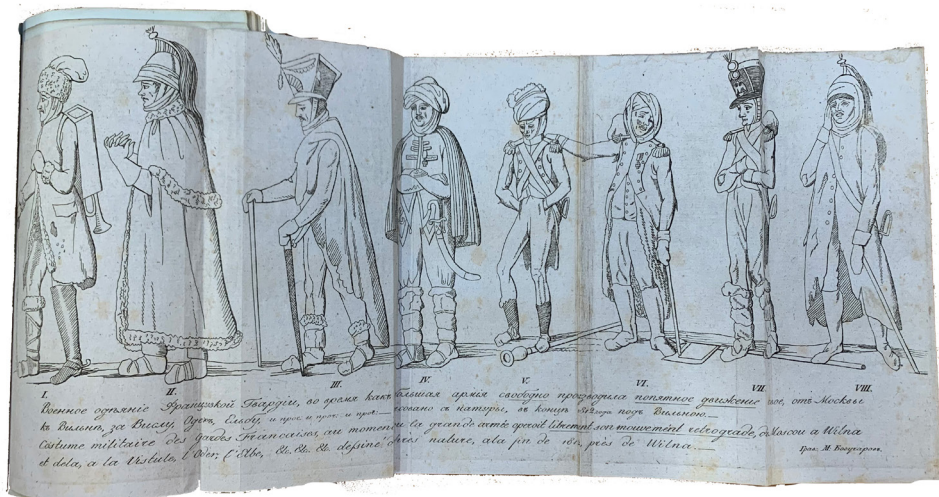 I. II. III. IV. V. VI. VII. VIII.
Военное одѣяніе Французской Гвардіи, во время какъ большая армія свободно производила попятное движение свое, отъ Москвы
къ Вильнѣ, за Вислу, Одеръ, Ельбу, и проч: и проч: и проч: — рисовано съ натуры, въ концѣ 1812 года подъ Вильною. —
Costume militaire des gardes Francaises, au moment ou la grande armée operoit librement son mouvement retrograde, de Moscou a Wilna
et dela, a la Vistule, l'Oder, l'Elbe, &c. &c. &c. desiné d'après nature, a la fin de 1812, près de Wilna. —
Грав. М. Богучаровъ.